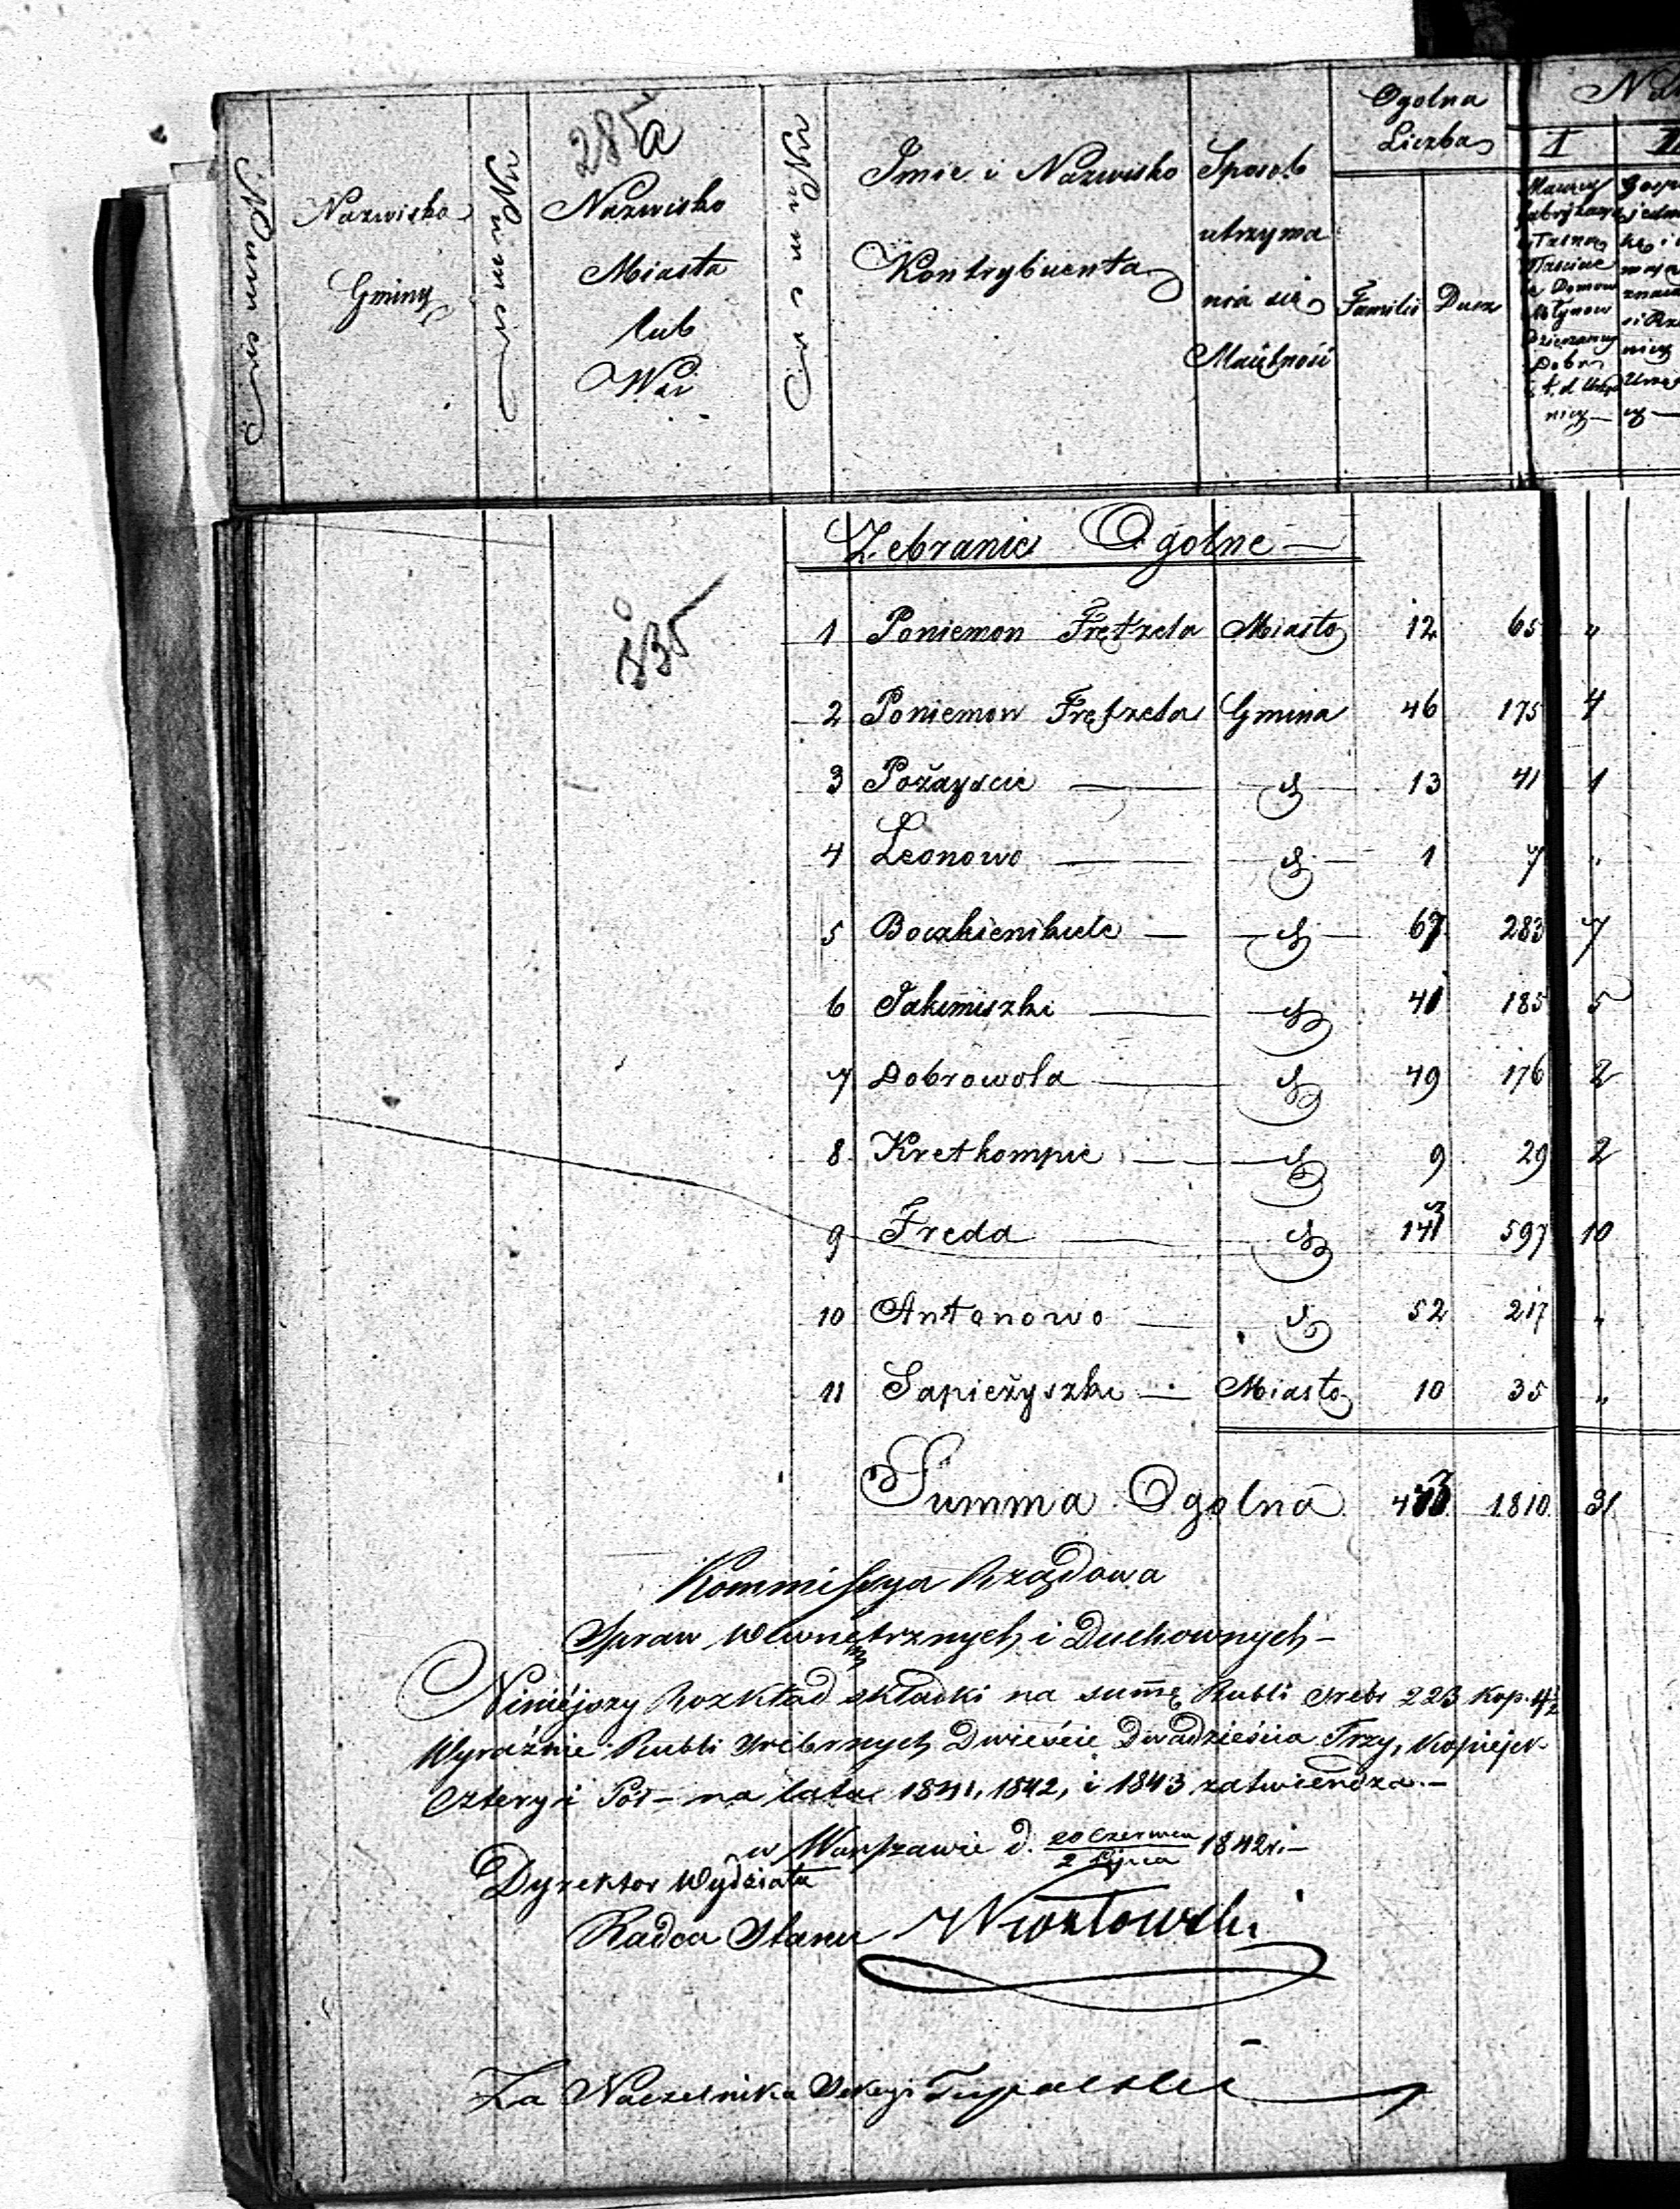 285a
Numer
Nazwisko
Gminy
Numer
Nazwisko
Miasta
lub
Wsi
Numer
Imie i Nazwisko
Kontrybuenta
Sposob
utrzyma
nia się
Maiętność
Ogolna
Liczba
Familii
Dusz
I
Zebranie Ogolne
1 Poniemon Frętzela Miasto 12 65 "
2 Poniemon Frętzela Gmina 46 175 4
3 Pożayscie — d 13 41 1
4 Leonowo — d 1 7 "
5 Boczkienikele — d 67 283 7
6 Jakimiszki — d 41 185 5
7 Dobrowola — d 49 176 2
8 Kretkompie — d 9 29 2
9 Freda — d 143 597 10
10 Antonowo — d 52 217 "
11 Sapieżyszki — Miasto 10 35 "
Summa Ogolna 443 1810 31
Kommissya Rządowa
Spraw Wewnętrznych i Duchownych —
Niniejszy Rozkład składki na summę Rubli srebr 223 kop. 4½
Wyraźnie Rubli Srebrnych Dwieście Dwadzieścia Trzy, Kopiejek
Cztery i Pół — na lata 1841, 1842, i 1843 zatwierdza. —
w Warszawie d. 20 Czerwca / 2 Lipca 1842 r. —
Dyrektor Wydziału
Radca Stanu
Za Naczelnika Sekcyi